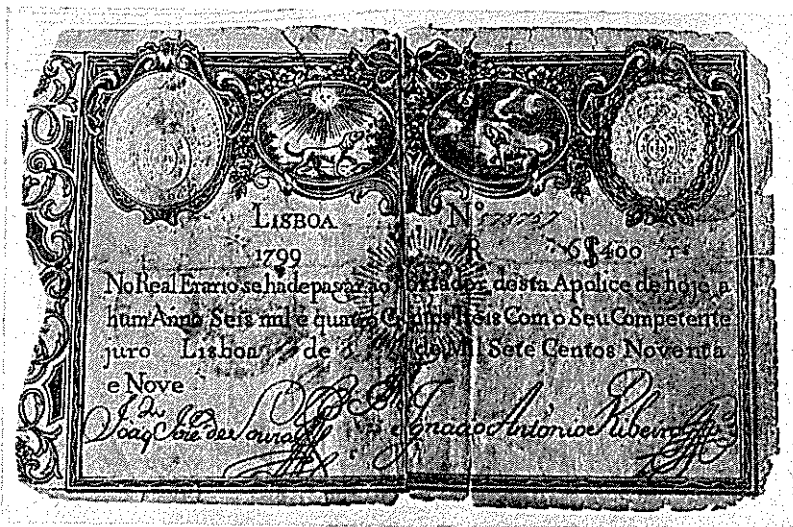 LISBOA Nº
1799 R 6$400 rs
No Real Erario se ha de pasar ao Portador desta Apolice de hoje a
hum Anno Seis mil e quatro Centos Reis Com o Seu Competente
juro Lisboa de de Mil Sete Centos Noventa
e Nove
Joaq Jose de Souza Ignacio Antonio Ribeiro